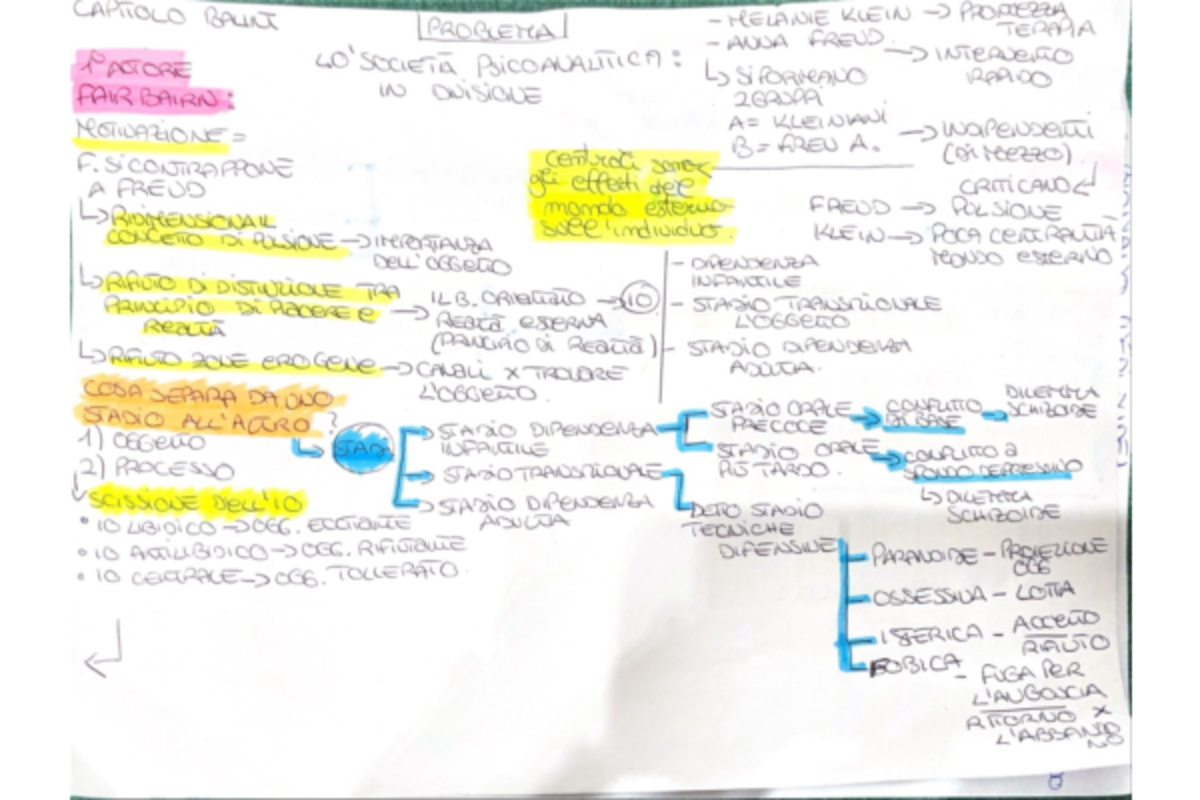 CAPITOLO BALINT
PROBLEMA
40' SOCIETÀ PSICOANALITICA:
IN DIVISIONE
- MELANIE KLEIN → PROMEZZA
TERAPIA
- ANNA FREUD → INTERVENTO
RAPIDO
↳ SI FORMANO
2 GRUPPI
A = KLEINIANI
B = FREU A.
→ INDIPENDENTI
(DI MEZZO)
CRITICANO
FREUD → PULSIONE
KLEIN → POCA CENTRALITÀ
MONDO ESTERNO
1° AUTORE
FAIRBAIRN:
MOTIVAZIONE =
F. SI CONTRAPPONE
A FREUD
↳ RIDIMENSIONA IL
CONCETTO DI PULSIONE → IMPORTANZA
DELL'OGGETTO
↳ RIFIUTO DI DISTINZIONE TRA
PRINCIPIO DI PIACERE E
REALTÀ
→ IL B. ORIENTATO → IO
REALTÀ ESTERNA
(PRINCIPIO DI REALTÀ)
↳ RIFIUTO ZONE EROGENE → CANALI X TROVARE
L'OGGETTO.
centrati
gli effetti
mondo esterno
sull'individuo.
- DIPENDENZA
INFANTILE
- STADIO TRANSIZIONALE
L'OGGETTO
- STADIO DIPENDENZA
ADULTA.
COSA SEPARA DA UNO
STADIO ALL'ALTRO?
1) OGGETTO
2) PROCESSO
↳ STADI
→ STADIO DIPENDENZA
INFANTILE
→ STADIO TRANSIZIONALE
→ STADIO DIPENDENZA
ADULTA
STADIO ORALE
PRECOCE
→ CONFLITTO
DI BASE
→ DILEMMA
SCHIZOIDE
STADIO ORALE
PIÙ TARDO.
→ CONFLITTO A
FONDO DEPRESSIVO
↳ DILEMMA
SCHIZOIDE
DETTO STADIO
TECNICHE
DIFENSIVE
PARANOIDE - PROIEZIONE
OGG
OSSESSIVA - LOTTA
ISTERICA - ACCETTO
RIFIUTO
FOBICA - FUGA PER
L'ANGOSCIA
RITORNO X
L'ABBANDO
NO
SCISSIONE DELL'IO
• IO LIBIDICO → OGG. ECCITANTE
• IO ANTILIBIDICO → OGG. RIFIUTANTE
• IO CENTRALE → OGG. TOLLERATO.